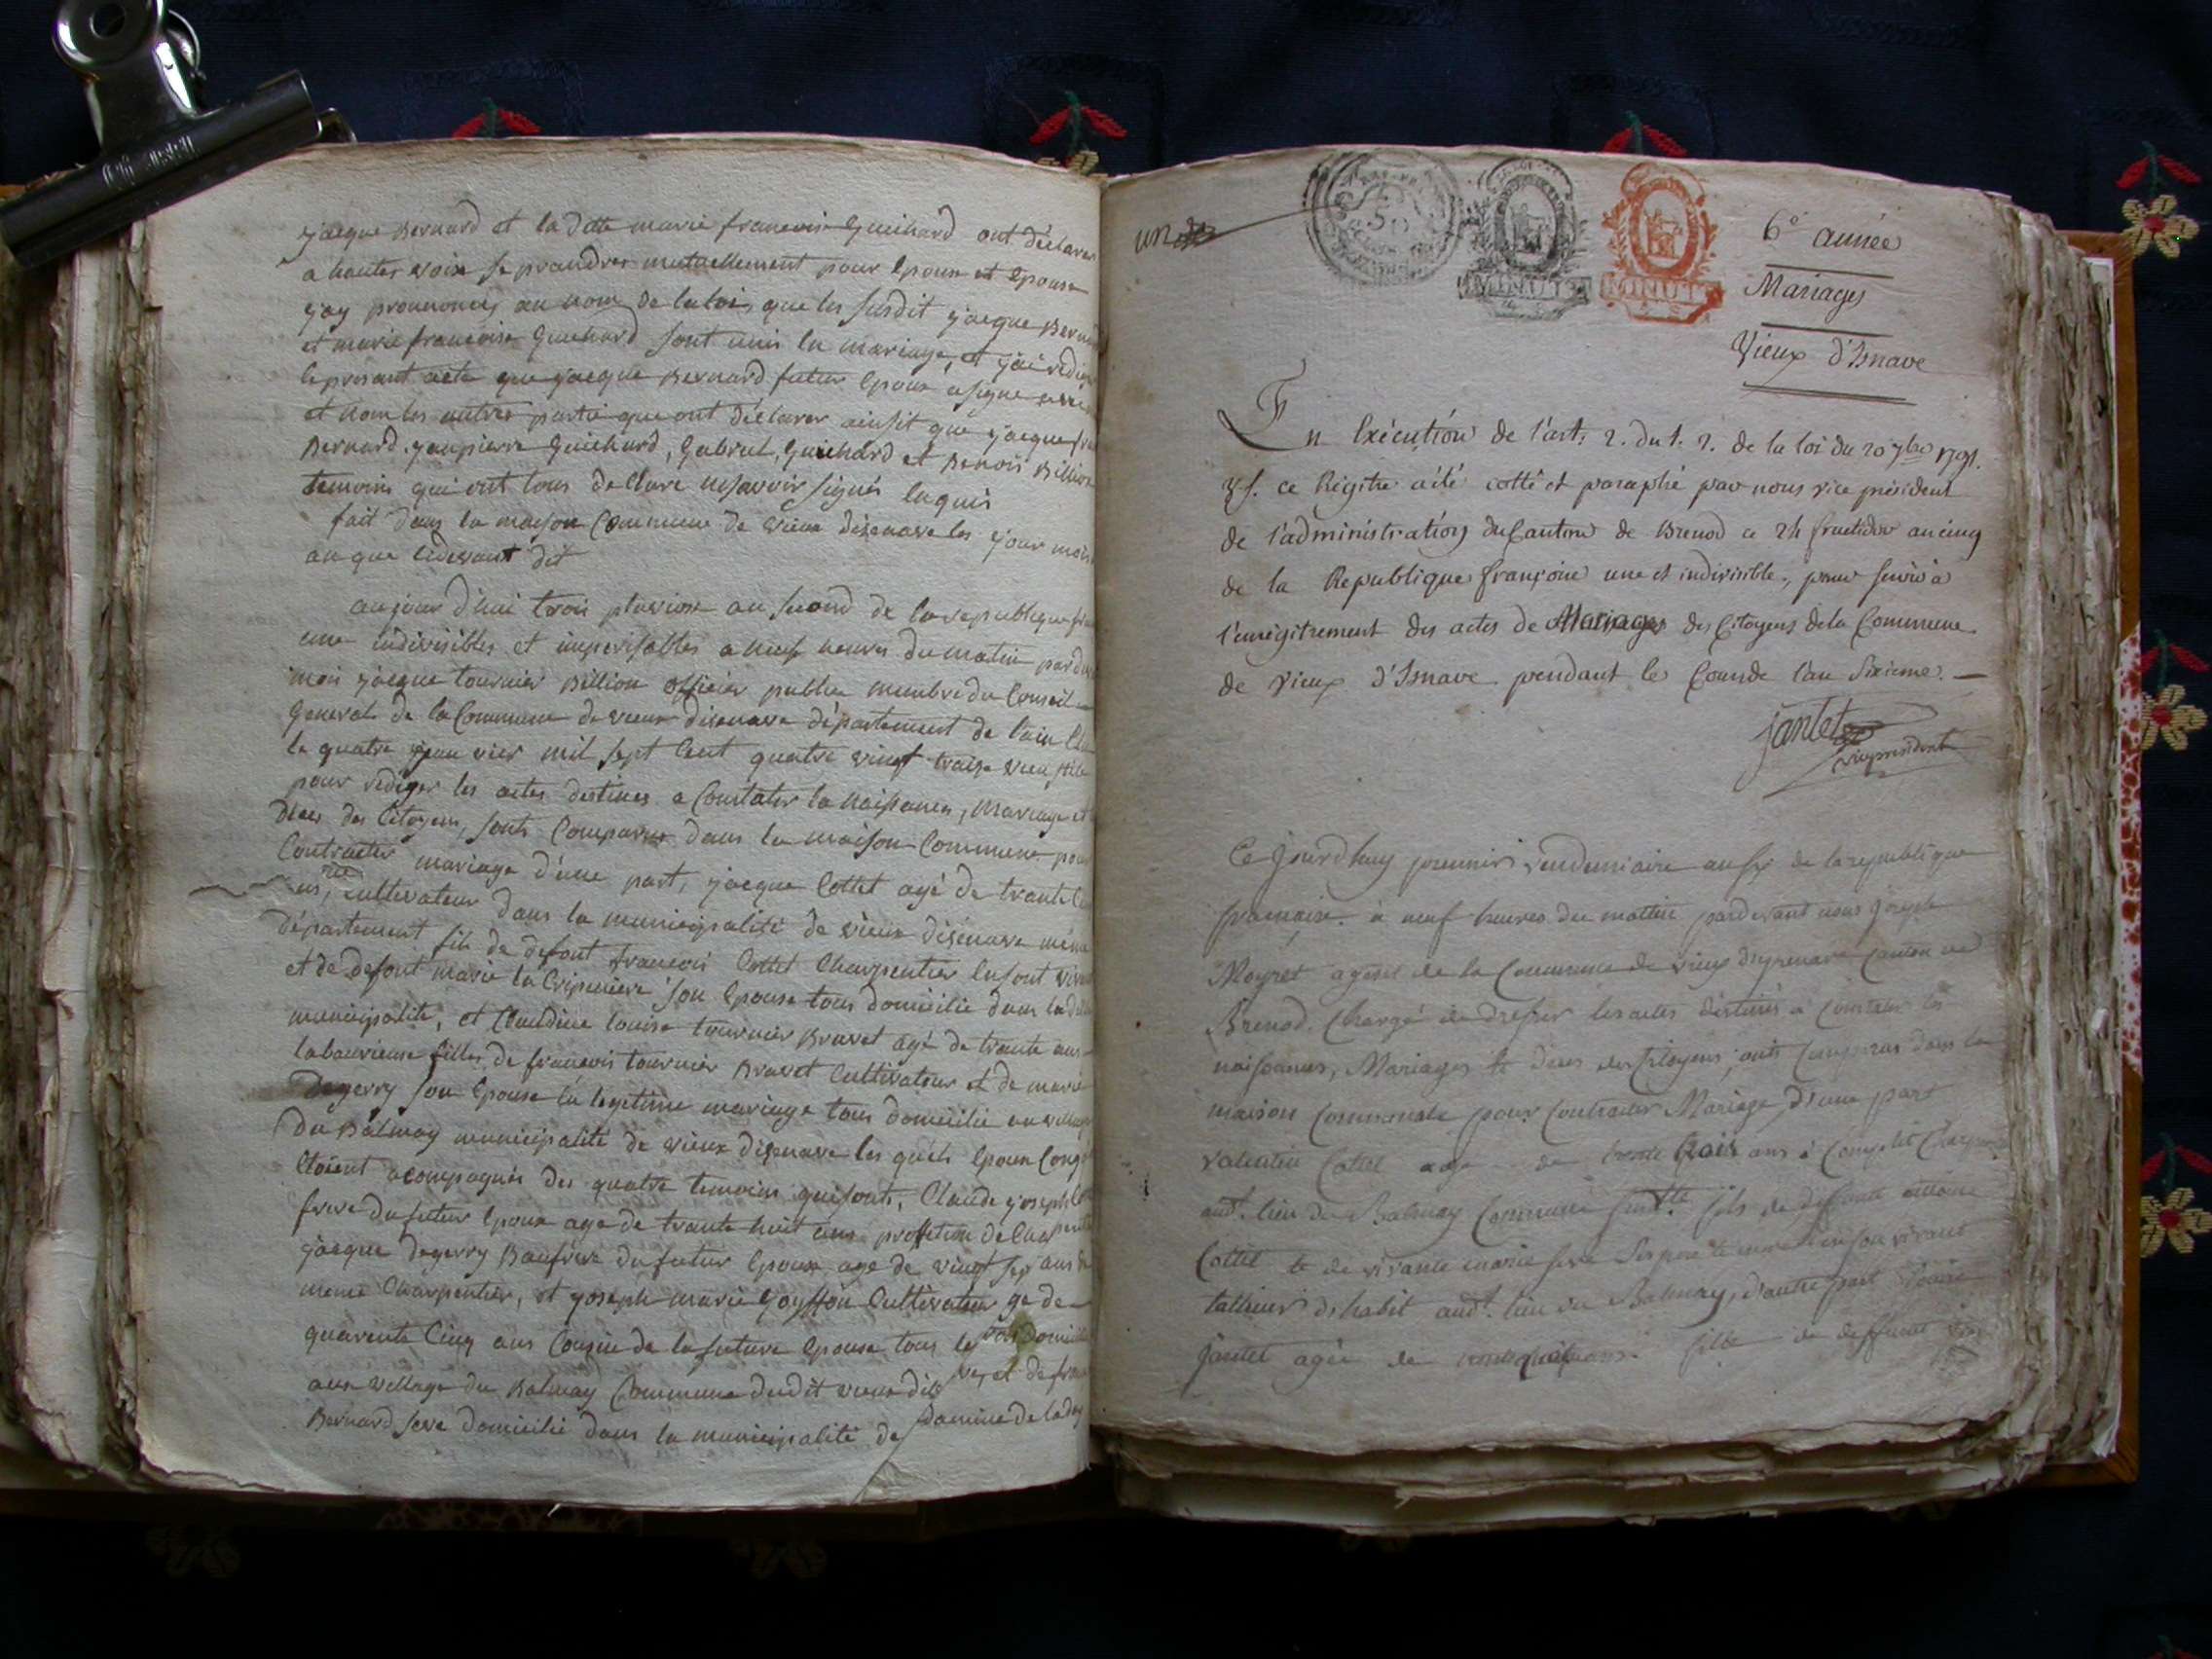 jacque Bernard et la ditte marie francoise Guichard ont déclarer
a hautes voix se prandres mutuellement pour Epoux et Epouse
j'ay prononcés au nom de la loi, que les susdit jacque Bernard
et marie francoise Guichard sont unis en mariage, et j'ai rediger
le presant acte que jacque Bernard futur Epoux a signe
et non les autres partie que ont déclarer ainsit que jacque
Bernard, jeanpierre Guichard, Gabriel Guichard et Benoit Billion
temoins qui ont tous declare ne savoir signés Enquis
fait dans la maison Commune de vieux disenave les jour mois
an que cidevant dit
aujourd'hui trois pluviose an second de la republique
une indivisibles et imperisables a neuf heures du matin pardevant
moi jacque tournier Billion officier public membre du Conseil
General de la Commune de vieux disenave département de l'ain
le quatre janvier mil sept Cent quatre vingt traise vieu stile
pour rediger les actes destinés a Constater la naissances, mariage et
déces des Citoyens, sont Comparus dans la maison Commune pour
Contracter mariage d'une part, jacque Cottet agé de trante
ans, Cultivateur dans la municipalité de vieux disenave même
département fils de defont francois Cottet Charpentier
et de defont marie la son Epouse tous domicilié dans la
municipalité, et Claudine louise tournier Bravet agé de trante ans
labourieuse filles de francois tournier Bravet Cultivateur et de marie
Degerry son Epouse en legitime mariage tous domicilié au village
du Balmay municipalité de vieux disenave les quels Epoux
Etoient acompagnés des quatre temoins qui sont, Claude joseph
frere du futur Epoux age de trante huit ans profession de Charpentier
jacque degerry Baufrere du futur Epoux age de vingt sep ans
meme Charpentier, et joseph marie Goyffon Cultivateur ge de
quarente Cinq ans Cousin de la future Epouse tous les domicilié
aux village du Balmay Commune dudit vieux
Bernard domicilié dans la municipalité de
un
6e année
Mariages
Vieux d'Isnave
MINUTE
MINUTE
En Exécution de l'art. 2. du t. 2. de la loi du 20 7bre 1791.
ce Régitre a été cotté et paraphé par nous vice président
de l'administration du Canton de Brenod ce 24 fructidor an cinq
de la Republique françoise une et indivisible, pour servir à
l'enregitrement des actes de Mariages des Citoyens de la Commune
de Vieux d'Isnave pendant le Cours de l'an Sixieme. —
jantet
vicepresident
Ce jourdhuy premier vendemiaire an six de la republique
francaise à neuf heures du mattin pardevant nous joseph
Moyret agent de la Commune de vieux dizenave Canton de
Brenod. Chargé de dresser les actes destinés a Constater les
naissances, Mariages et deces des Citoyens, ont Comparus dans la
maison Communale pour Contracter Mariage, d'une part
valentin Cottet agé de trente trois ans
audt. lieu du Balmay Commune fils de deffunt
Cottet et de vivante marie en son vivant
tallieur d'habit audt. lieu du Balmay, d'autre part
jantet agée de ans fille de deffunt